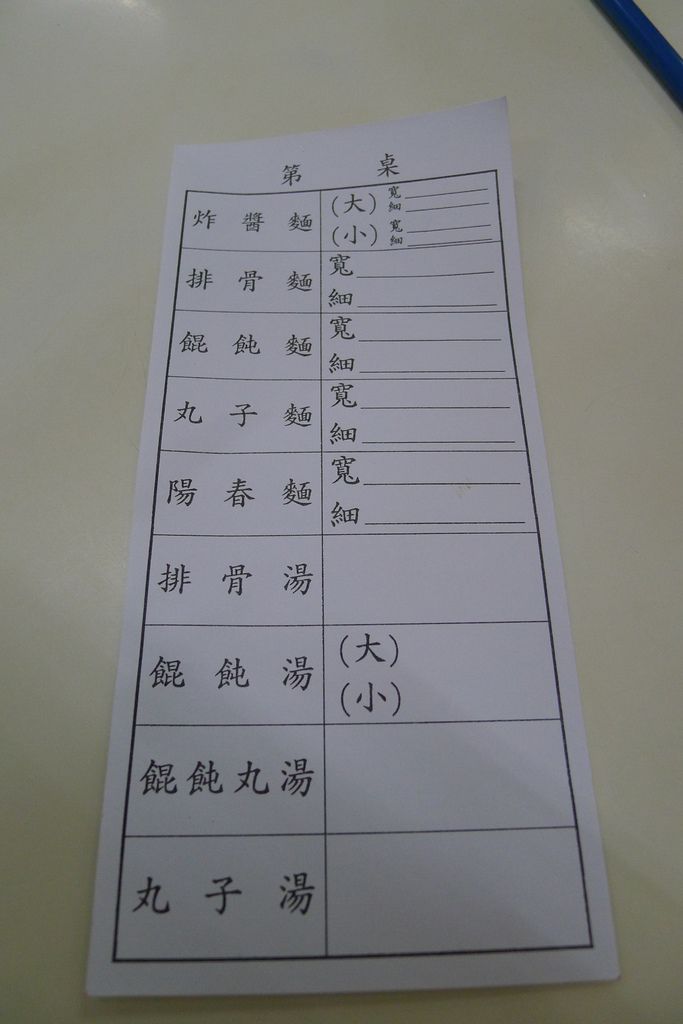 第 桌
炸醬麵 (大) 寬
細
(小) 寬
細
排骨麵 寬
細
餛飩麵 寬
細
丸子麵 寬
細
陽春麵 寬
細
排骨湯
餛飩湯 (大)
(小)
餛飩丸湯
丸子湯